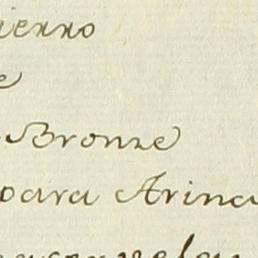 ierro
e
Bronze
para Arina